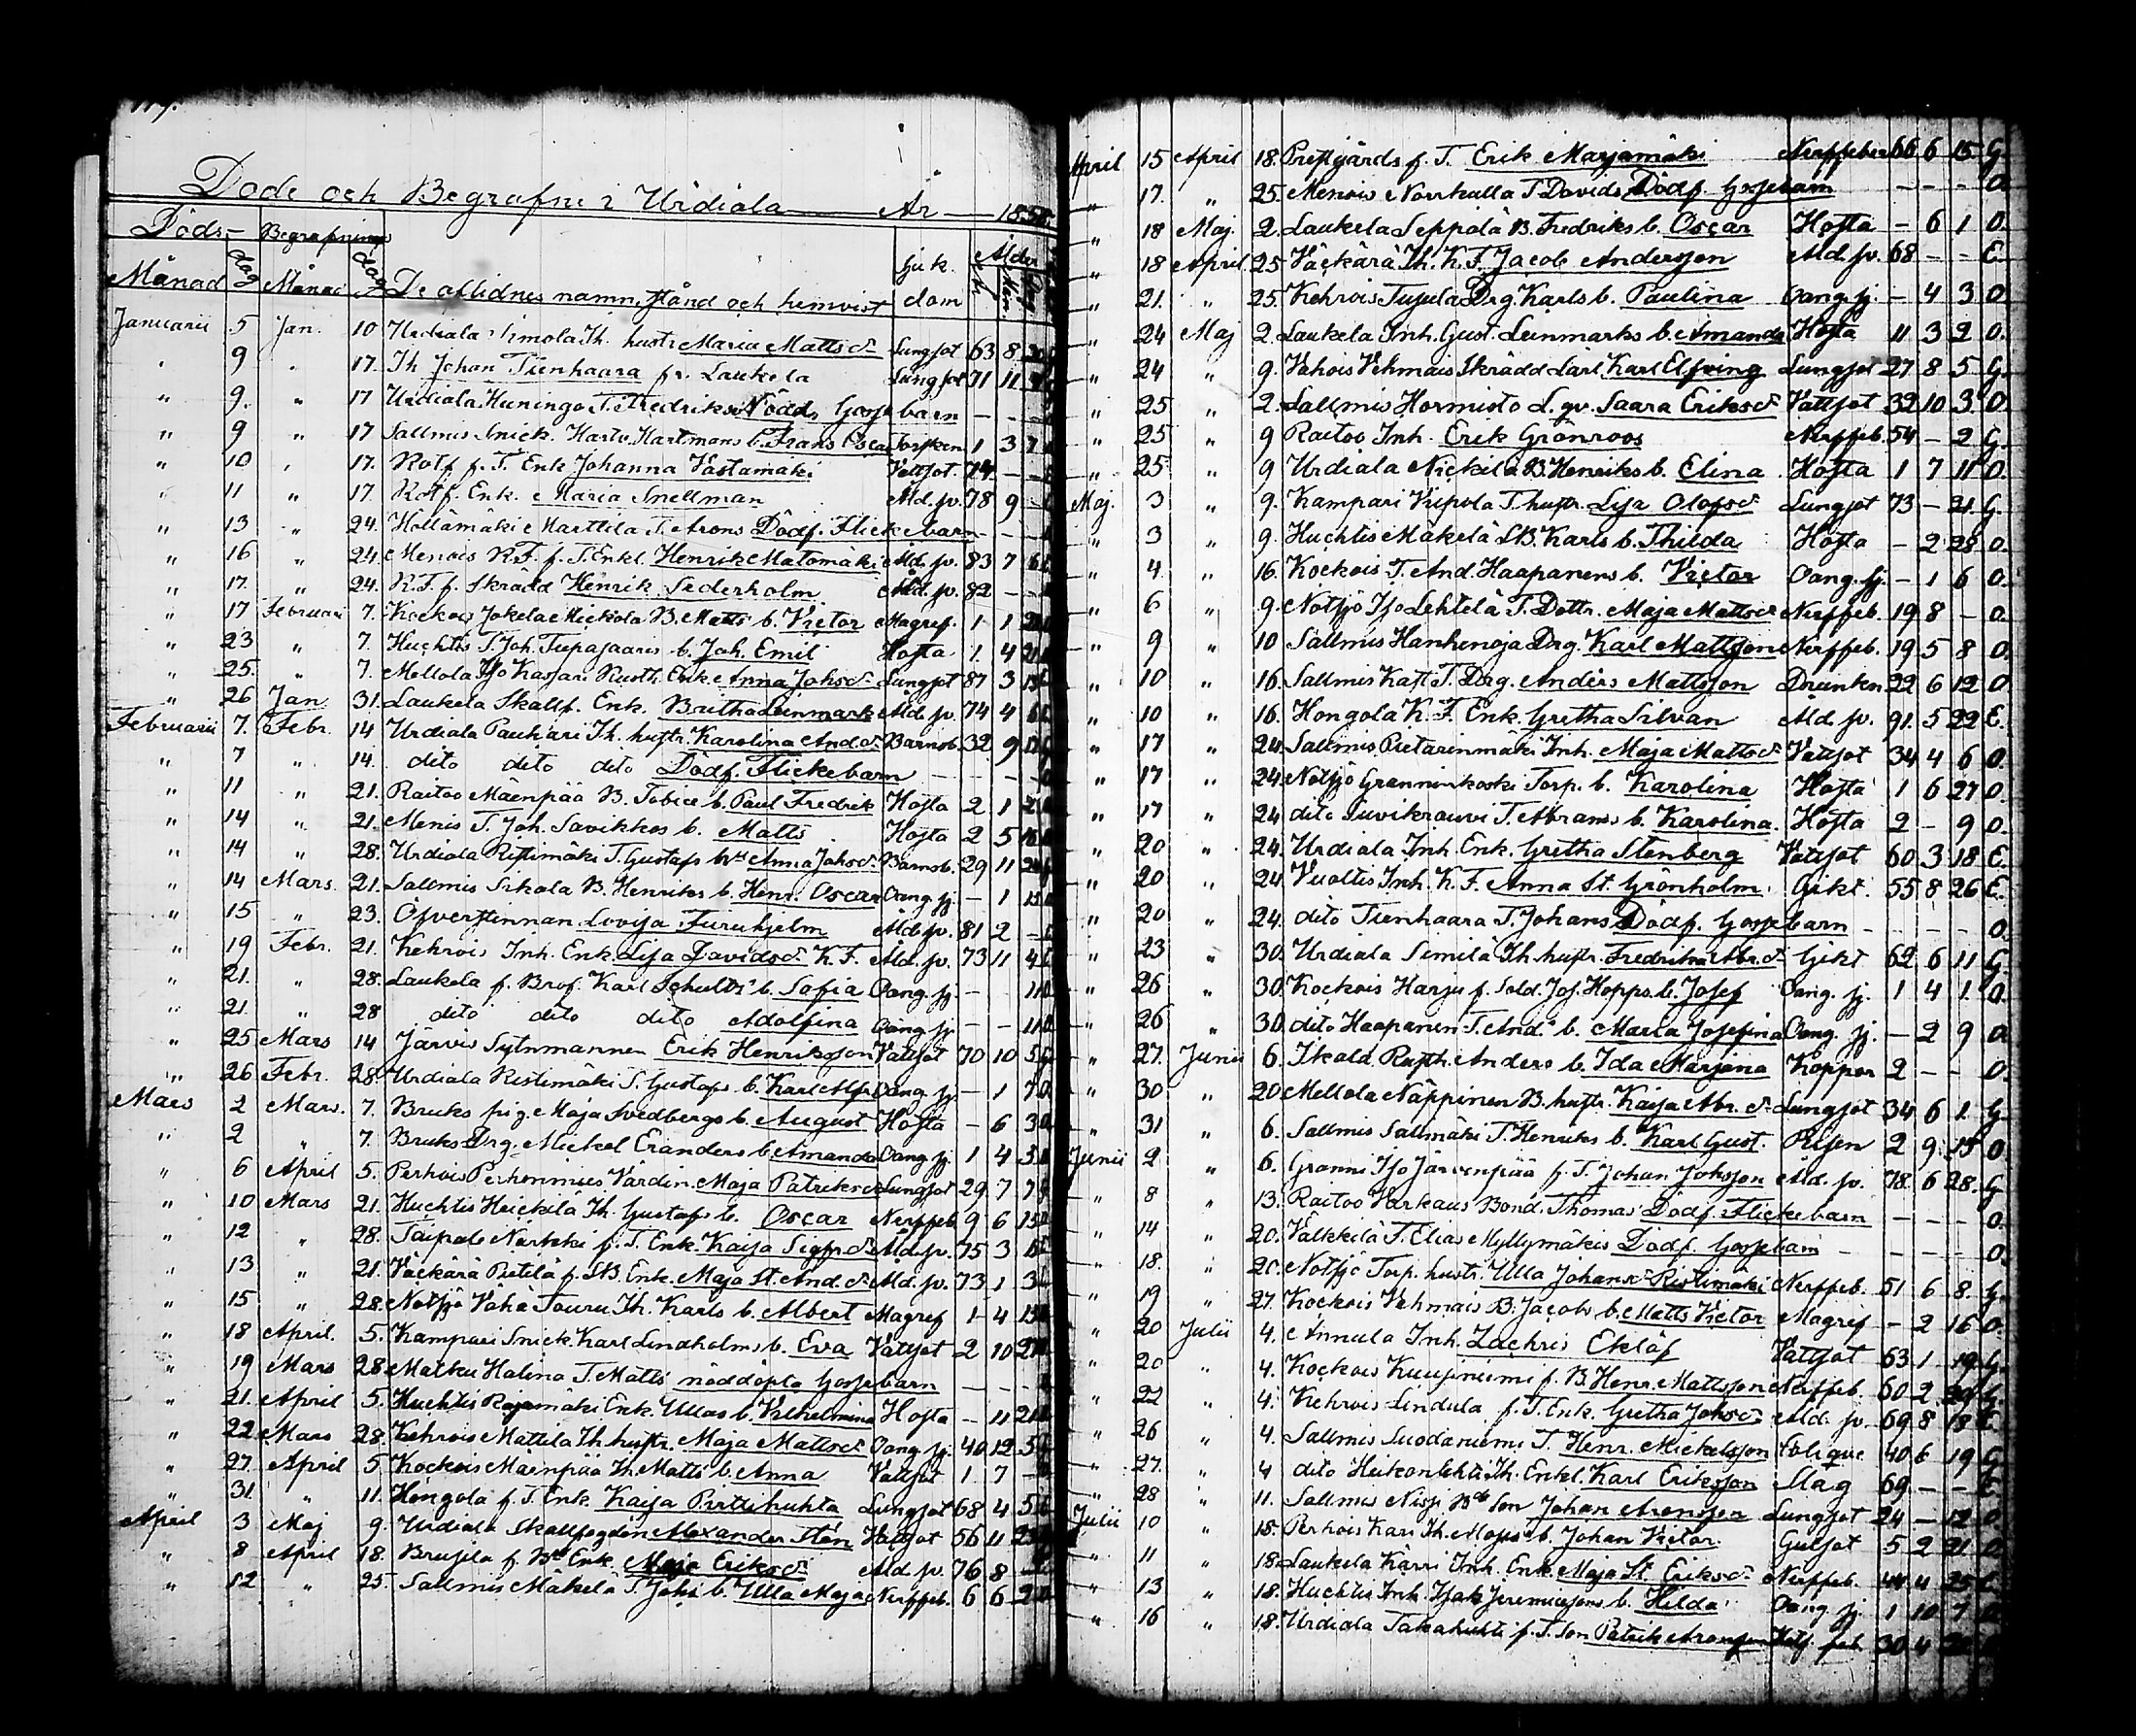 Döde och Begrafne i Urdiala År 185
Döds- Begrafnings
Månad dag Månad dag De aflidnes namn, stånd och hemvist Sjukdom Ålder
Januarii 5 Jan. 10 Urdiala Simola Th. hustr. Maria Mattsdr Lungsot 63 8
" 9 " 17. Th Johan Tienhaara fr. Laukela Lungsot 71 11
" 9. " 17 Urdiala Huningo T. Fredriks Nödd. Gossebarn - -
" 9 " 17 Sallmis Snick. Hartmans b. Frans Oscar Torsken 1 3 7
" 10 " 17. Rotf. f. T. Enk Johanna Vastamäki Vattsot. 74 -
" 11 " 17. Rotf. Enk. Maria Snellman Åld.sv. 78 9 -
" 13 " 24. Hollämäki Marttila T. Arons Dödf. Flickebarn - -
" 16 " 24. Menois R.F. f. T. Enkl. Henrik Matomäki Åld.sv. 83 7 6
" 17. " 24. R.F. f. Skrädd Henrik Sederholm Åld.sv. 82 - -
" 17 Februari 7. Kockois Jokela Mickola B. Matts b. Victor Magref. 1 1
" 23 " 7. Huchtis T. Joh. Tiepasaaris b. Joh. Emil Hosta 1. 4
" 25. " 7. Mellola Iso Kassari Rusth. Enk. Anna Johsdr Lungsot 87 3
" 26 Jan 31. Laukela Skallf. Enk. Britha Leinmark Åld.sv. 74 4 6
Februarii 7. Febr. 14 Urdiala Pauhari Th. hustr. Karolina And.dr Barnsb. 32 9
" 7 " 14. dito dito dito Dödf. Flickebarn - - -
" 11 " 21. Raitoo Mäenpää B. Tobias b. Paul Fredrik Hosta 2 1
" 14 " 21. Menis T. Joh. Savikkos b. Matts Hosta 2 5
" 14 " 28. Urdiala Ristimäki T. Gustafs h. Anna Johsdr Barnsb. 29 11
" 14 Mars. 21. Sallmis Sikala B. Henriks b. Henr. Oscar Oang.sj. - 1
" 15 " 23. Öfverstinnan Lovisa Furuhjelm Åld.sv. 81 2 -
" 19 Febr. 21. Kehrois Inh. Enk. Lisa Davidsdr K.F. Åld.sv. 73 11 4
" 21. " 28. Laukela f. Karl Schults b. Sofia Oang.sj. - - 11
" 21 " 28 dito dito dito Adolfina Oang.sj. - - 11
" 25 Mars 14 Järvis Sytnmannen Erik Henriksson Vattsot 70 10 5
" 26 Febr. 28. Urdiala Ristimäki T. Gustafs b. Karl Alfr. Oang.sj. - 1 7
Mars 2 Mars. 7. Bruks pig. Maja Svedbergs b. August Hosta - 6 3
" 2 " 7. Bruks Drg. Mickel Eranders b. Amanda Oang.sj. 1 4 3
" 6 April 5. Perhois Perhonmies Värdin. Maja Patriksdr Lungsot 29 7 7
" 10 Mars 21. Huchtis Heickilä Th. Gustafs b. Oscar Nerffeb. 9 6
" 12 " 28. Taipale Närkki f. T. Enk. Kaisa Sigfr.dr Åld.sv. 75 3
" 13 " 21. Väckärä Pietilä f. Enk. Maja St. And.dr Åld.sv. 73 1 3
" 15 " 28. Notsjö Vähä Touru Th. Karls b. Albert Magref 1 4
" 18 April. 5. Kampari Snick. Karl Lindholms b. Eva Vattsot 2 10
" 19 Mars 28 Matku Halina T. Matts nöddöpta Gossebarn - - -
" 21. April 5. Huchtis Rajamäki Enk. Ullas b. Vilhelmina Hosta - 11
" 22 Mars 28. Kehrois Mattila Th. hustr. Maja Mattsdr Oang.sj. 40 12 5
" 27. April 5 Kockois Mäenpää Th. Matts b. Anna Vattsot 1 7 -
" 31. " 11. Hongola f. T. Enk. Kaisa Pirttihuhta Lungsot 68 4 5
April 3 Maj 9. Urdiala Skallfogden Alexander Stén Vattsot 56 11
" 8 April 18. Brusila f. Enk. Maja Eriksdr Åld.sv. 76 8 -
" 12 " 25. Sallmis Mäkelä T. Johs b. Ulla Maja Nerffeb. 6 6 2
April 15 April 18. Prestgårds f. T. Erik Marjamäki Nerffeber 66 6 15 G.
" 17. " 25. Menois Norrkulla T. Davids Dödf. Gossebarn - - - O.
" 18 Maj. 2. Laukela Seppälä B. Fredriks b. Oscar Hosta - 6 1 O.
" 18 April 25 Väckärä Th. K.F. Jacob Andersson Åld.sv. 68 - - E.
" 21. " 25. Kehrois Tujula Drg. Karls b. Paulina Oang.sj. - 4 3 O.
" 24 Maj 2. Laukela Inh. Gust. Leinmarks b. Amanda Hosta 11 3 2 O.
" 24 " 9. Vahois Vehmais Skrädd Lärl. Karl Elfving Lungsot 27 8 5 G.
" 25 " 2. Sallmis Hormisto L. qv. Saara Eriksdr Vattsot 32 10 3 O.
" 25 " 9 Raitoo Inh. Erik Grönroos Nerffeb. 54 - 2 G.
" 25 " 9 Urdiala Nickilä B. Henriks b. Elina Hosta 1 7 11 O.
Maj. 3 " 9. Kampari Viepola T. hustr. Lisa Olofsdr Lungsot 73 - 21. G.
" 3 " 9. Huchtis Mäkelä SB. Karls b. Thilda Hosta - 2 28 O.
" 4. " 16. Kockois T. And. Haapanens b. Victor Oang.sj. - 1 6 O.
" 6 " 9. Notsjö Iso Lehtelä T. Dottr. Maja Mattsdr Nerffeb. 19 8 - O.
" 9 " 10 Sallmis Hankenoja Drg. Karl Mattsson Nerffeb. 19 5 8 O.
" 10 " 16. Sallmis Kaft T. Drg. Anders Mattsson Drunkn 22 6 12 O.
" 10 " 16. Hongola K.F. Enk. Gretha Silvan Åld.sv. 91. 5 22 E.
" 17 " 24. Sallmis Pietarinmäki Inh. Maja Mattsdr Vattsot 34 4 6 O.
" 17 " 24. Notsjö Granninkoski Torp. b. Karolina Hosta 1 6 27 O.
" 17 " 24 dito Suvikrouvi T. Abrams b. Karolina. Hosta 2 - 9 O.
" 20 " 24. Urdiala Inh. Enk. Gretha Stenberg Vattsot 60 3 18 E.
" 20 " 24. Vuoltis Inh. K.F. Anna St. Grönholm Gikt. 55 8 26 E.
" 20 " 24. dito Tienhaara T. Johans Dödf. Gossebarn - - - O.
" 23 " 30. Urdiala Simila Th. hustr. Fredrika Abr.dr Gikt 62 6 11 G.
" 26 " 30. Kockois Harju f. Sold. Jos. Hopps b. Josef Oang.sj. 1 4 1. O.
" 26 " 30. dito Haapanen T. And.s b. Maria Josefina Oang.sj. - 2 9 O.
" 27. Junii 6. Ikala Rusth. Anders b. Ida Mariana Koppor 2 - - O.
" 30 " 20. Mellola Näppinen B. hustr. Kaisa Abr.dr Lungsot 34 6 1. G.
" 31 " 6. Sallmis Salimäki T. Henriks b. Karl Gust. Risen 2 9 15 O.
Junii 2 " 6. Granni Iso Järvenpää f. T. Johan Johsson Åld.sv. 78. 6 28. G.
" 8 " 13. Raitoo Varkaus Bond. Thomas Dödf. Flickebarn - - - O.
" 14 " 20. Valkkila T. Elias Myllymäkis Dödf. Gossebarn - - - O.
" 18. " 20. Notsjö Torp. hustr. Ulla Johansdr Ristimäki Nerffeb. 51 6 8. G.
" 19 " 27. Kockois Vehmais B. Jacobs b. Matts Victor Magref - 2 16 O.
" 20 Julii 4. Annula Inh. Zachris Eklöf Vattsot 63 1 19 G.
" 20 " 4. Kockois Kuusiniemi f. B. Henr. Mattsson Nerffeb. 60 2 G.
" 22 " 4. Kehrois Lindula f. T. Enk. Gretha Johsdr Åld.sv. 69 8 18 E.
" 26 " 4. Sallmis Suodenniemi T. Henr. Mickelsson Colique 40 6 19 G.
" 27. " 4 dito Heikonlehti Th. Enkl. Karl Eriksson Slag 69 - - E.
" 28 " 11. Sallmis Nissi Son Johan Aronsson Lungsot 24 - 12 O.
Julii 10 " 18. Perhois Kari Th. b. Johan Victor Gulsot 5 2 21 O.
" 11 " 18. Laukela Kärri Inh. Enk. Maja St. Eriksdr Nerffeb. 44 4 25
" 13 " 18. Huchtis Inh. Isak Jeremiassons b. Hilda Oang.sj. 1 10 7
" 16 " 18. Urdiala Takahuhti f. T. Son Patrik Aronsson 30 4